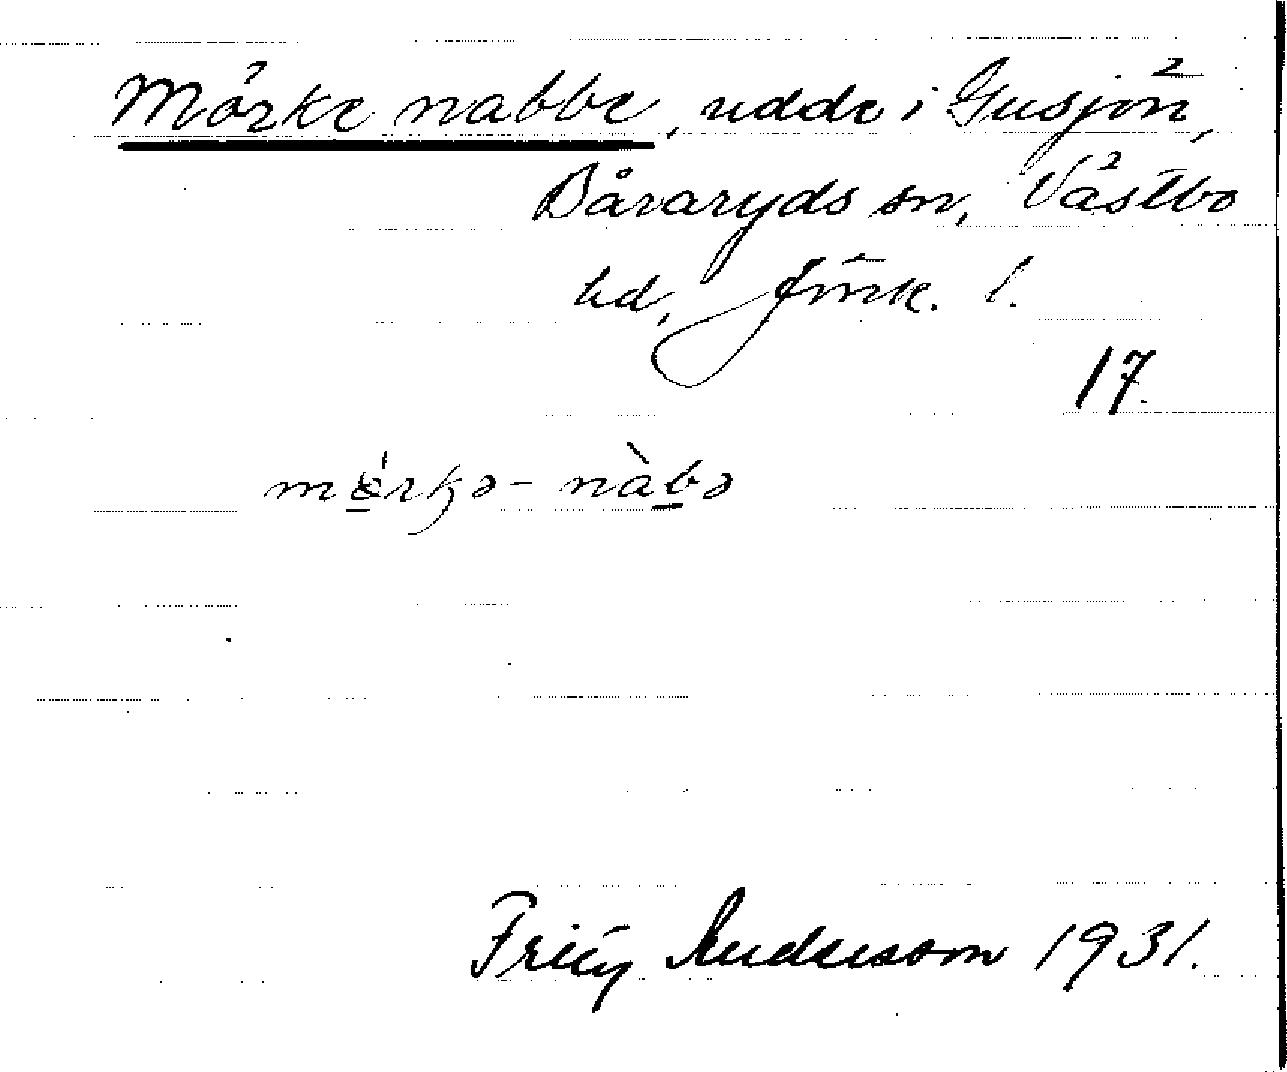 Mörke nabbe, udde i Gusjön,
Båraryds sn, Västbo
hd, Jönk. l.
17.
mö́rkə-nàbə
Fritz Andersson 1931.